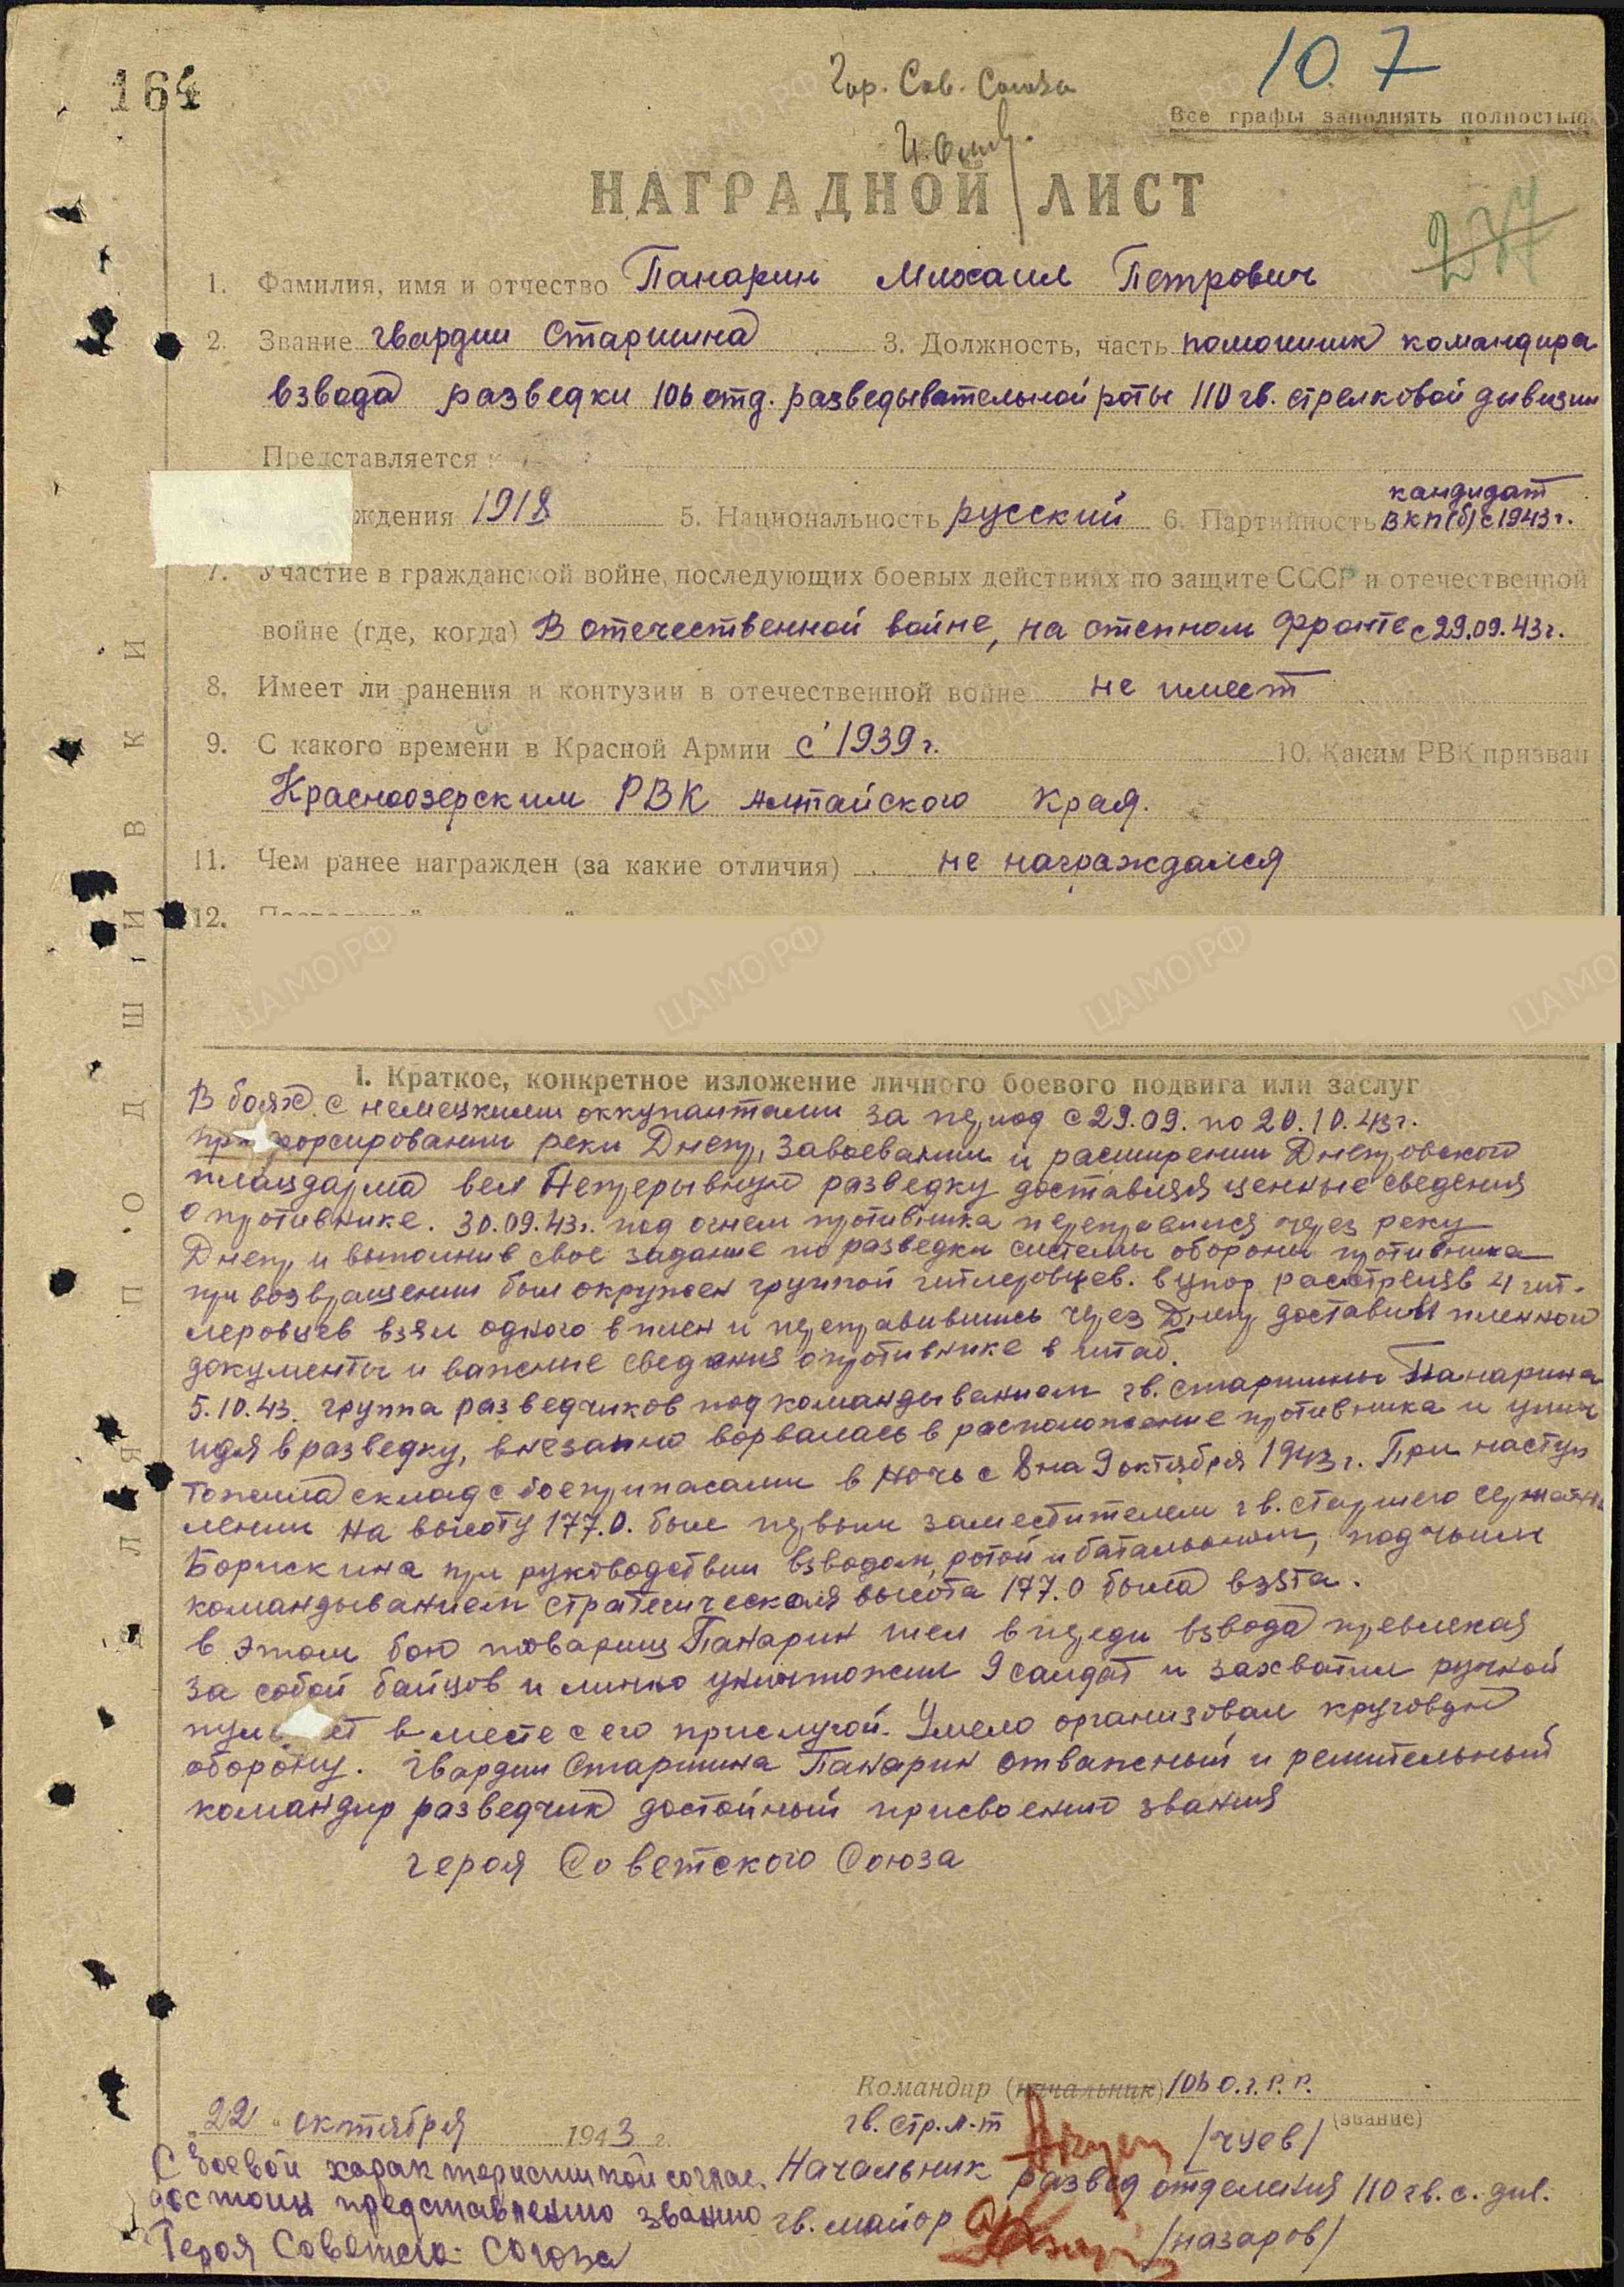 164
10.7
Гер. Сов. Союза
Все графы заполнять полностью
НАГРАДНОЙ ЛИСТ
237
1. Фамилия, имя и отчество Панарин Михаил Петрович
2. Звание гвардии Старшина 3. Должность, часть помошник командира
взвода разведки 106 отд. разведывательной роты 110 гв. стрелковой дивизии
Представляется к
ждения 1918 5. Национальность русский 6. Партийность кандидат
ВКП(б) с 1943 г.
7. Участие в гражданской войне, последующих боевых действиях по защите СССР и отечественной
войне (где, когда) В отечественной войне, на степном фронте с 29.09.43 г.
8. Имеет ли ранения и контузии в отечественной войне не имеет
9. С какого времени в Красной Армии с 1939 г. 10. Каким РВК призван
Краснозерским РВК Алтайского Края.
11. Чем ранее награжден (за какие отличия) не награждался
12.
ПОДШИВКИ
ДЛЯ
I. Краткое, конкретное изложение личного боевого подвига или заслуг
В боях с немецкими оккупантами за период с 29.09. по 20.10.43 г.
при форсировании реки Днепр, завоевании и расширении Днепровского
плацдарма вел Непрерывную разведку доставляя ценные сведения
о противнике. 30.09.43 г. под огнем противника переправился через реку
Днепр и выполнив свое задание по разведки системы обороны противника
при возвращении был окружен группой гитлеровцев. в упор расстреляв 4 гит-
леровцев взял одного в плен и переправившись через Днепр доставил пленного
документы и важные сведения о противнике в штаб.
5.10.43. группа разведчиков под командыванием гв. старшины Панарина
идя в разведку, внезапно ворвалась в расположение противника и унич
тожила склад с боеприпасами в ночь с 8 на 9 октября 1943 г. При наступ
лении на высоту 177.0. был первым заместителем гв. старшего сержанта
Борискина при руководствии взводом, ротой и батальоном, под чьим
командыванием стратегическая высота 177.0 была взята.
в этом бою товарищ Панарин шел впереди взвода превлекая
за собой бойцов и лично уничтожил 9 солдат и захватил ручной
пулемет вместе с его прислугой. Умело организовал круговую
оборону. Гвардии Старшина Панарин отважный и решительный
командир разведчик достойный присвоению звания
героя Советского Союза
Командир (начальник) 106 о.г.р.р.
(звание)
22 " октября 1943 г.
гв. стр. л-т /Чуев/
С Боевой характеристикой соглас.
достоин представлению званию
Героя Советско. Союза
Начальник развед отделения 110 гв. с. див.
гв. майор /Назаров/